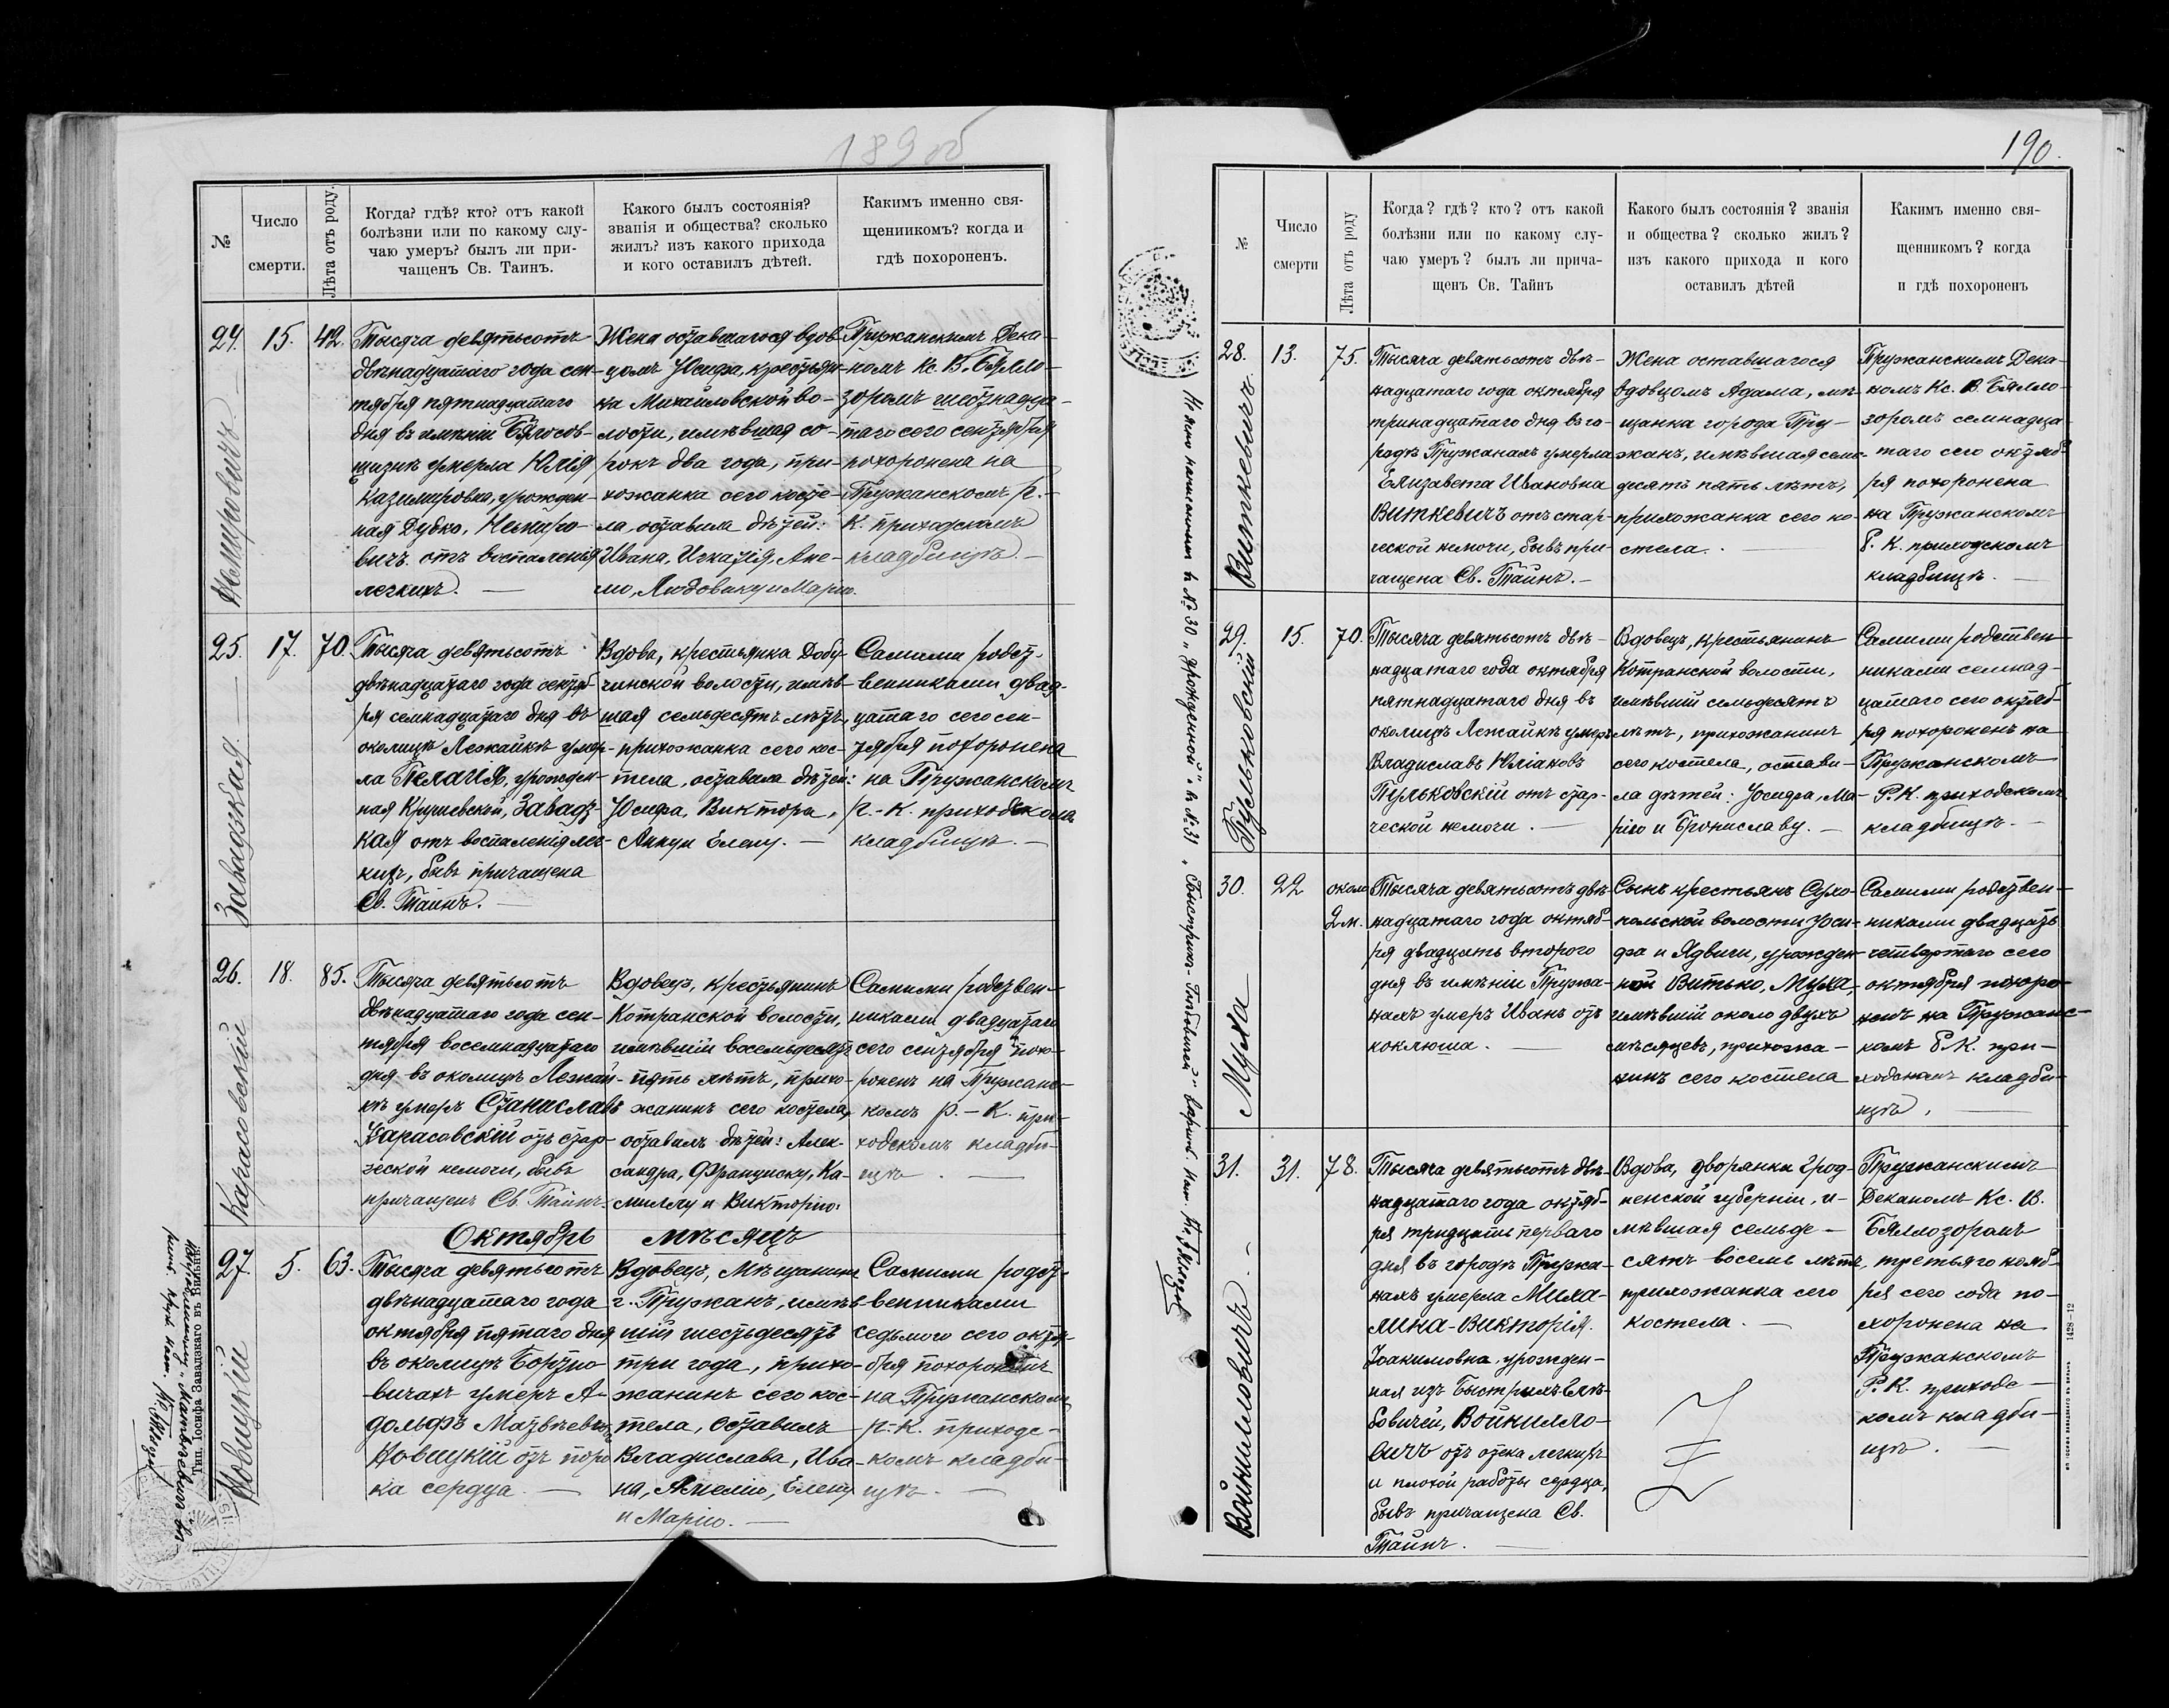 189 об
№
Число
смерти.
Лѣта отъ роду.
Когда? гдѣ? кто? отъ какой
болѣзни или по какому слу-
чаю умеръ? былъ ли при-
чащенъ Св. Таинъ.
Какого былъ состоянія?
званія и общества? сколько
жилъ? изъ какого прихода
и кого оставилъ дѣтей.
Какимъ именно свя-
щенникомъ? когда и
гдѣ похороненъ.
24.
Немировичъ
15.
42.
Тысяча девятьсотъ
двѣнадцатаго года сен-
тября пятнадцатаго
дня въ имѣніи Бѣлосов-
щизнѣ умерла Юлія
Казимировна, урожден-
ная Дубко, Неміро-
вичъ отъ воспаленія
легкихъ. —
Жена оставшагося вдов-
цомъ Юсифа, крестьян-
ка Михайловской во-
лости, имѣвшая со-
рокъ два года, при-
хожанка сего косте-
ла, оставила дѣтей:
Ивана, Игнатія, Аме-
лію, Людовику и Марію.
Пружанскимъ Дека-
номъ Кс. В. Бялло-
зоромъ шестнадца-
таго сего сентября
похоронена на
Пружанскомъ Р.-
К. приходскомъ
кладбищѣ. —
25.
Завадзкая.
17.
70.
Тысяча девятьсотъ
двѣнадцатаго года сентяб-
ря семнадцатаго дня въ
околицѣ Лежайкѣ умер-
ла Пелагія, урожден-
ная Крушевской, Завадз-
кая отъ воспаленія лег-
кихъ, бывъ причащена
Св. Таинъ. —
Вдова, крестьянка Добу-
чинской волости, имѣв-
шая семьдесятъ лѣтъ,
прихожанка сего кос-
тела, оставила дѣтей:
Юсифа, Виктора,
Анну и Елену. —
Самими родст-
венниками двад-
цатаго сего сен-
тября похоронена
на Пружанскомъ
Р.-К. приходскомъ
кладбищѣ. —
26.
Карасовскій
18.
85.
Тысяча девятьсотъ
двѣнадцатаго года сен-
тября восемнадцатаго
дня въ околицѣ Лежай-
кѣ умеръ Станиславъ
Карасовскій отъ стар-
ческой немочи, бывъ
причащенъ Св. Таинъ.
Вдовецъ, крестьянинъ
Котранской волости,
имѣвшій восемьдесятъ
пять лѣтъ, прихо-
жанинъ сего костела,
оставилъ дѣтей: Алек-
сандра, Франциску, Ка-
миллу и Викторію.
Самими родствен-
никами двадцатаго
сего сентября похо-
роненъ на Пружанс-
комъ Р.-К. при-
ходскомъ кладби-
щѣ. —
Октябрь мѣсяцъ
27.
Новицкій
5.
63.
Тысяча девятьсотъ
двѣнадцатаго года
октября пятаго дня
въ околицѣ Бортно-
вичахъ умеръ А-
дольфъ Матвѣевъ
Новицкій отъ поро-
ка сердца. —
Вдовецъ, мѣщанинъ
г. Пружанъ, имѣв-
шій шестьдесятъ
три года, прихо-
жанинъ сего кос-
тела, оставилъ
Владислава, Ива-
на, Амелію, Елену
и Марію. —
Самими родст-
венниками
седьмого сего октя-
бря похороненъ
на Пружанскомъ
Р.-К. приходс-
комъ кладби-
щѣ. —
Тип. Іосифа Завадзкаго въ Вильнѣ.
190.
№
Число
смерти
Лѣта отъ роду
Когда? гдѣ? кто? отъ какой
болѣзни или по какому слу-
чаю умеръ? былъ ли прича-
щенъ Св. Тайнъ
Какого былъ состоянія? званія
и общества? сколько жилъ?
изъ какого прихода и кого
оставилъ дѣтей
Какимъ именно свя-
щенникомъ? когда
и гдѣ похороненъ
28.
Виткевичъ
13.
75.
Тысяча девятьсотъ двѣ-
надцатаго года октября
тринадцатаго дня въ го-
родѣ Пружанахъ умерла
Елизавета Ивановна
Виткевичъ отъ стар-
ческой немочи, бывъ при-
чащена Св. Таинъ. —
Жена оставшагося
вдовцомъ Адама, мѣ-
щанка города Пру-
жанъ, имѣвшая семь-
десятъ пять лѣтъ,
прихожанка сего ко-
стела. —
Пружанскимъ Дека-
номъ Кс. В. Бялло-
зоромъ семнадца-
таго сего октяб-
ря похоронена
на Пружанскомъ
Р. К. приходскомъ
кладбищѣ. —
29.
Пульковскій
15.
70.
Тысяча девятьсотъ двѣ-
надцатаго года октября
пятнадцатаго дня въ
околицѣ Лежайкѣ умеръ
Владиславъ Юліановъ
Пульковскій отъ стар-
ческой немочи. —
Вдовецъ, крестьянинъ
Котранской волости,
имѣвшій семьдесятъ
лѣтъ, прихожанинъ
сего костела, остави-
ла дѣтей: Іосифа, Ма-
рію и Брониславу. —
Самими родствен-
никами семнад-
цатаго сего октяб-
ря похороненъ на
Пружанскомъ
Р. К. приходскомъ
кладбищѣ. —
30.
Муха
22
около
2 м.
Тысяча девятьсотъ двѣ-
надцатаго года октяб-
ря двадцать второго
дня въ имѣніи Пружа-
нахъ умеръ Иванъ отъ
коклюша. —
Сынъ крестьянъ Сухо-
польской волости Іоси-
фа и Ядвиги, урожден-
ной Витько, Муха,
имѣвшій около двухъ
мѣсяцевъ, прихожа-
нинъ сего костела
Самими родствен-
никами двадцать
четвертаго сего
октября похоро-
ненъ на Пружанс-
комъ Р. К. при-
ходскомъ кладби-
щѣ. —
31.
Войнилловичъ.
31.
78.
Тысяча девятьсотъ двѣ-
надцатаго года октяб-
ря тридцать перваго
дня въ городѣ Пружа-
нахъ умерла Миха-
лина-Викторія
Іоакимовна, урожден-
ная изъ Быстрыхъ Глѣ-
бовичей, Войнилло-
вичъ отъ отека легкихъ
и плохой работы сердца,
бывъ причащена Св.
Таинъ. —
Вдова, дворянка Грод-
ненской губерніи, и-
мѣвшая семьде-
сятъ восемь лѣтъ,
прихожанка сего
костела. —
Пружанскимъ
Деканомъ Кс. В.
Бяллозоромъ
третьяго нояб-
ря сего года по-
хоронена на
Пружанскомъ
Р. К. приходс-
комъ кладби-
щѣ. —
1428—12